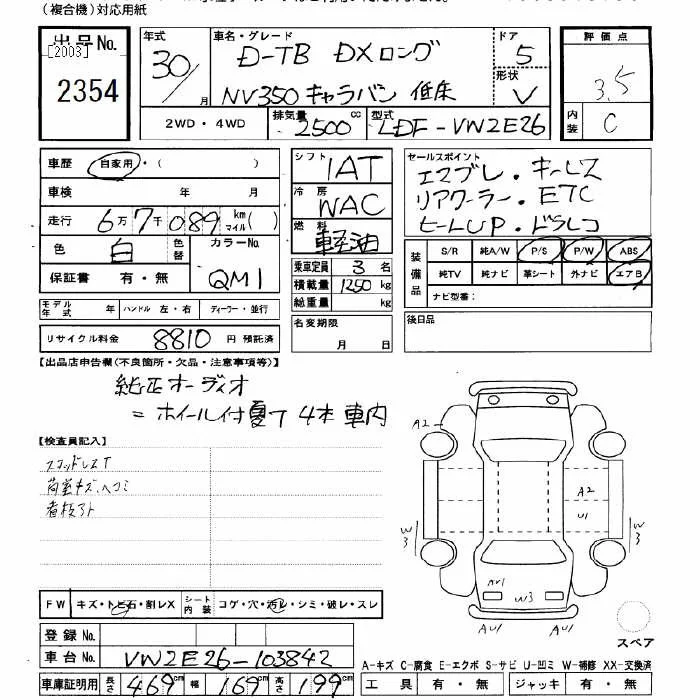 (複合機)対応用紙
出品No. [2003] 2354
年式 30/ 月
車名・グレード D-TB DXロング
NV350 キャラバン 低床
ドア 5
形状 V
評価点 3.5
内装 C
2WD・4WD
排気量 2500cc
型式 LDF-VW2E26
車歴 自家用・( )
車検 年 月
走行 6万7千089km マイル( )
色 白 色替
カラーNo. QM1
保証書 有・無
シフト IAT
冷房 WAC
燃料 軽油
乗車定員 3名
積載量 1250kg
総重量 kg
セールスポイント
エマブレ・キーレス
リアクーラー・ETC
ヒールUP・ドラレコ
装備品
S/R 純A/W P/S P/W ABS
純TV 純ナビ 革シート 外ナビ エアB
ナビ型番:
モデル年式 年 ハンドル 左・右 ディーラー・並行
リサイクル料金 8810円 預託済
名変期限 月 日
後日品
【出品店申告欄(不良箇所・欠品・注意事項等)】
純正オーディオ
=ホイール付夏T 4本 車内
【検査員記入】
スタッドレスT
荷室キズ、ヘコミ
看板アト
A2
A2
U1
W3
W3
AU1
W3
AU1
AU1
スペア
FW キズ・トビ石・割レX
シート内装 コゲ・穴・汚レ・シミ・破レ・スレ
登録No.
車台No. VW2E26-103842
車庫証明用 長さ469cm 幅169cm 高さ199cm
A-キズ C-腐食 E-エクボ S-サビ U-凹ミ W-補修 XX-交換済
工具 有・無 ジャッキ 有・無